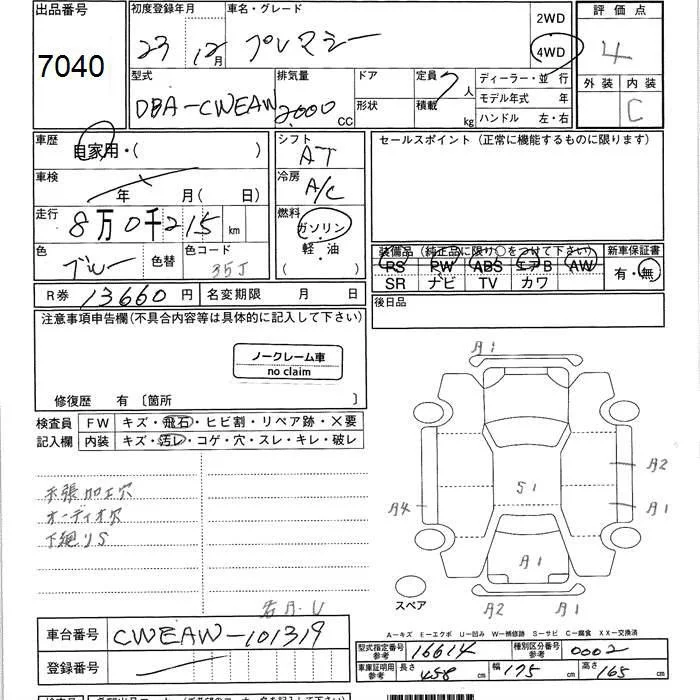 出品番号
7040
初度登録年月
23 12月
車名・グレード
プレマシー
2WD
4WD
評価点
4
外装 内装
C
型式
DBA-CWEAW
排気量
2000 CC
ドア
形状
定員 7 人
積載 kg
ディーラー・並行
モデル年式 年
ハンドル 左・右
車歴
自家用・( )
車検
年 月(日)
走行
8万0千215 km
色
ブルー
色替
色コード
35J
シフト
AT
冷房
A/C
燃料
ガソリン
・
軽・油
( )
セールスポイント (正常に機能するものに限ります)
装備品 (純正品に限り○をつけて下さい)
PS PW ABS エアB AW
SR ナビ TV カワ
新車保証書
有・無
後日品
R券 13660円 名変期限 月 日
注意事項申告欄(不具合内容等は具体的に記入して下さい)
ノークレーム車
no claim
修復歴 有 〔箇所 〕
検査員
記入欄
FW キズ・飛石・ヒビ割・リペア跡・×要
内装 キズ・汚レ・コゲ・穴・スレ・キレ・破レ
天張加工穴
オーディオ穴
下廻りS
A1
A2
A4
S1
A1
A1
A2
A1
スペア
A-キズ E-エクボ U-凹み W-補修跡 S-サビ C-腐食 XX-交換済
車台番号 CWEAW-101319
登録番号
型式指定番号
参考
16614
種別区分番号
参考
0002
車庫証明用
参考
長さ 458 cm
幅 175 cm
高さ 165 cm